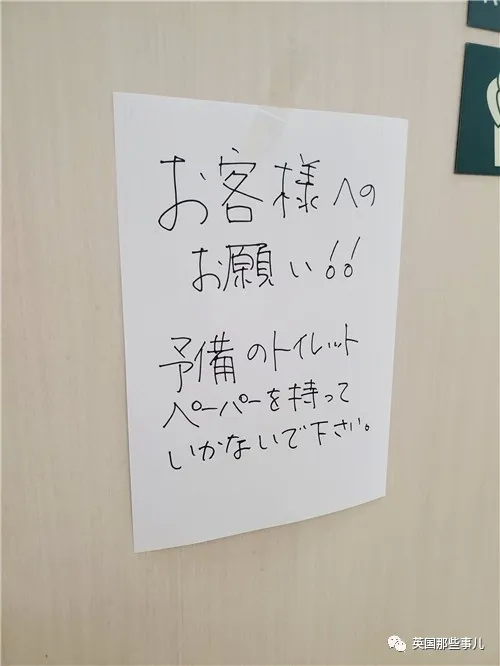 お客様への
お願い!!
予備のトイレット
ペーパーを持って
いかないで下さい。
英国那些事儿